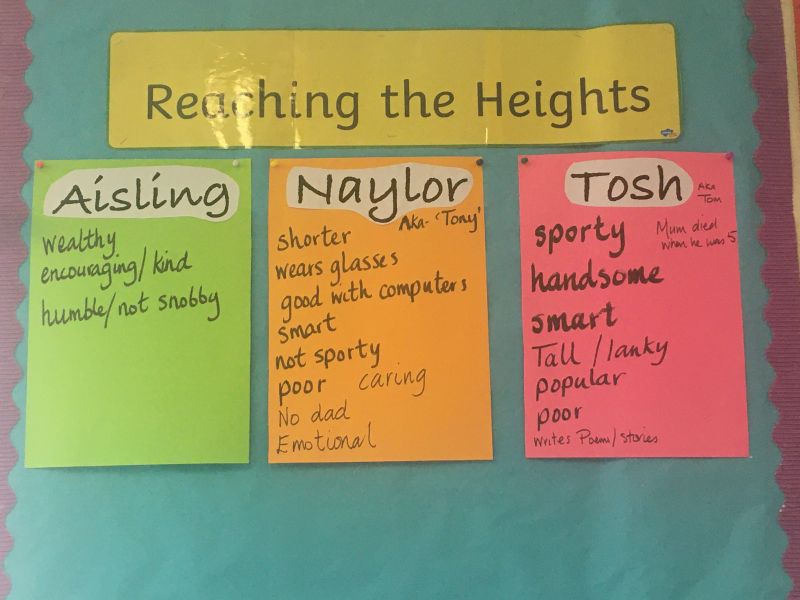 Reaching the Heights
Aisling
wealthy
encouraging/kind
humble/not snobby
Naylor
Aka- 'Tony'
shorter
wears glasses
good with computers
smart
not sporty
poor caring
No dad
Emotional
Tosh
Aka
Tom
sporty
Mum died
when he was 5
handsome
smart
Tall/lanky
popular
poor
writes Poems/stories